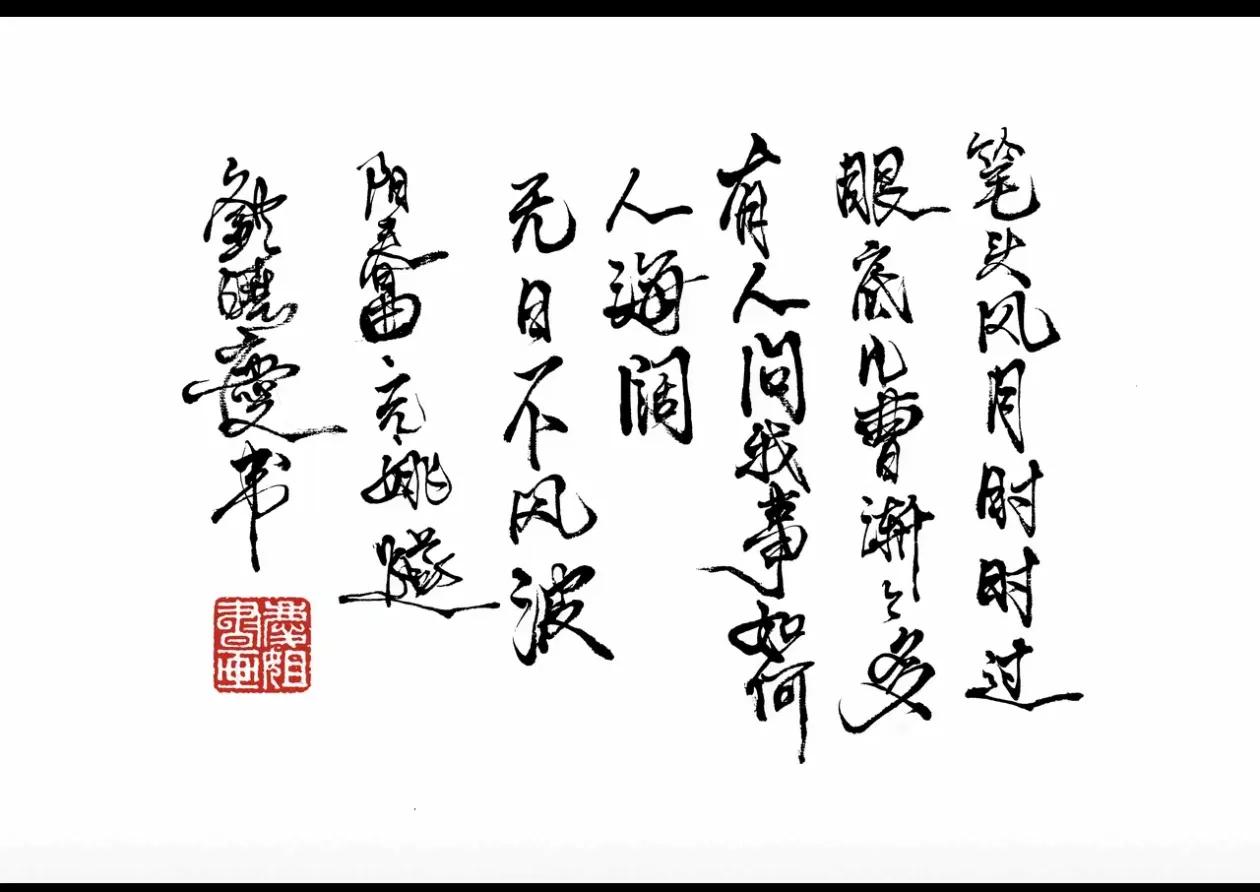 笔头风月时时过
眼底儿曹渐々多
有人问我事如何
人海阔
无日不风波
阳春曲元姚燧
庆书
庆姐书画